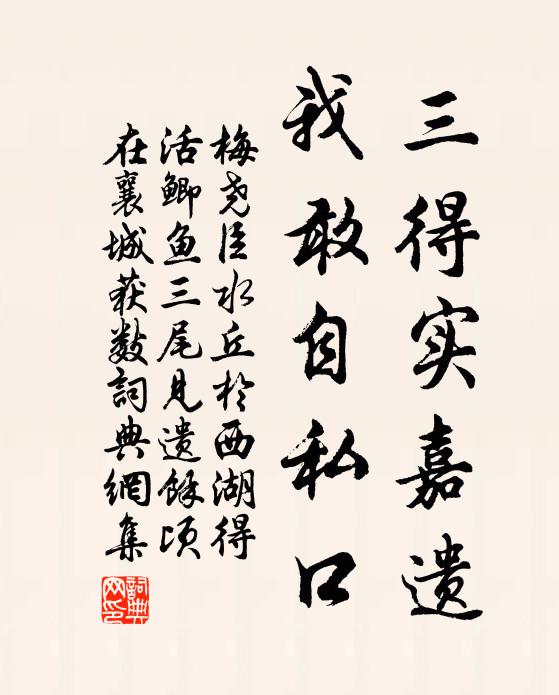 三得实嘉遗
我敢自私口
梅尧臣水丘於西湖得
活鲫鱼三尾见遗餘顷
在襄城获数詞典網集
詞典
网印